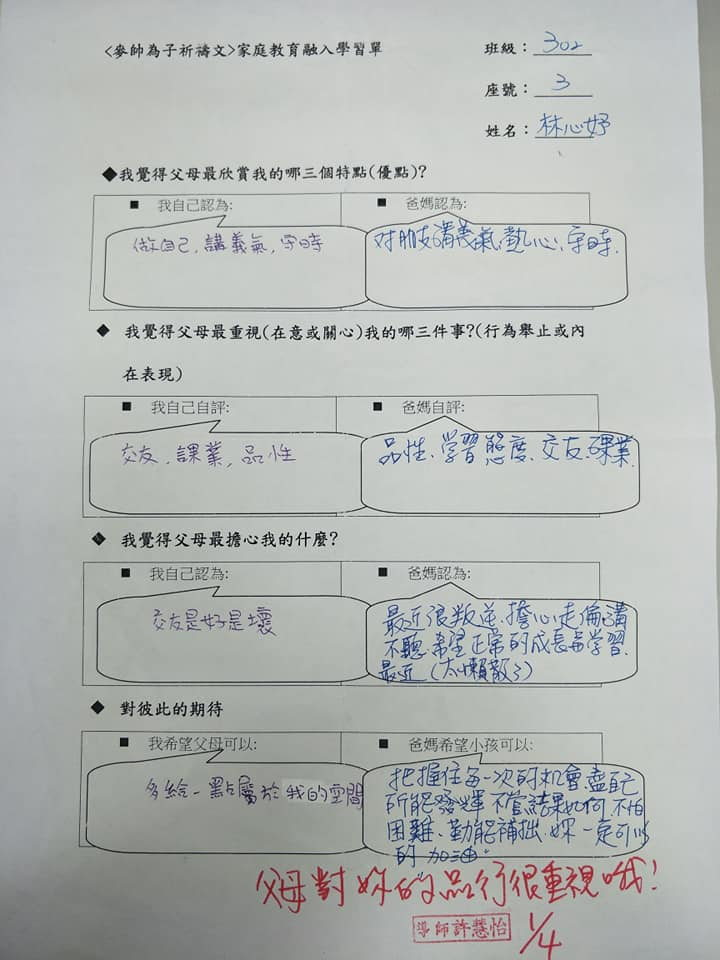 <麥帥為子祈禱文>家庭教育融入學習單
班級：302
座號：3
姓名：林心妤
◆我覺得父母最欣賞我的哪三個特點(優點)?
■ 我自己認為:
做自己,講義氣,守時
■ 爸媽認為:
对朋友講義氣、熱心、守時.
◆ 我覺得父母最重視(在意或關心)我的哪三件事?(行為舉止或內
在表現)
■ 我自己自評:
交友,課業,品性
■ 爸媽自評:
品性、学習態度、交友、課業.
◆ 我覺得父母最擔心我的什麼?
■ 我自己認為:
交友是好是壞
■ 爸媽認為:
最近很叛逆.擔心走偏.講
不聽.希望正常的成長与学習.
最近(太懶散了)
◆ 對彼此的期待
■ 我希望父母可以:
多給一點屬於我的空間
■ 爸媽希望小孩可以:
把握住每一次的机會.盡自己
所能發輝.不管結果如何.不怕
困難、勤能補拙.妳一定可以
的 加油.
父母對妳的品行很重視哦!
導師許慧怡
1/4